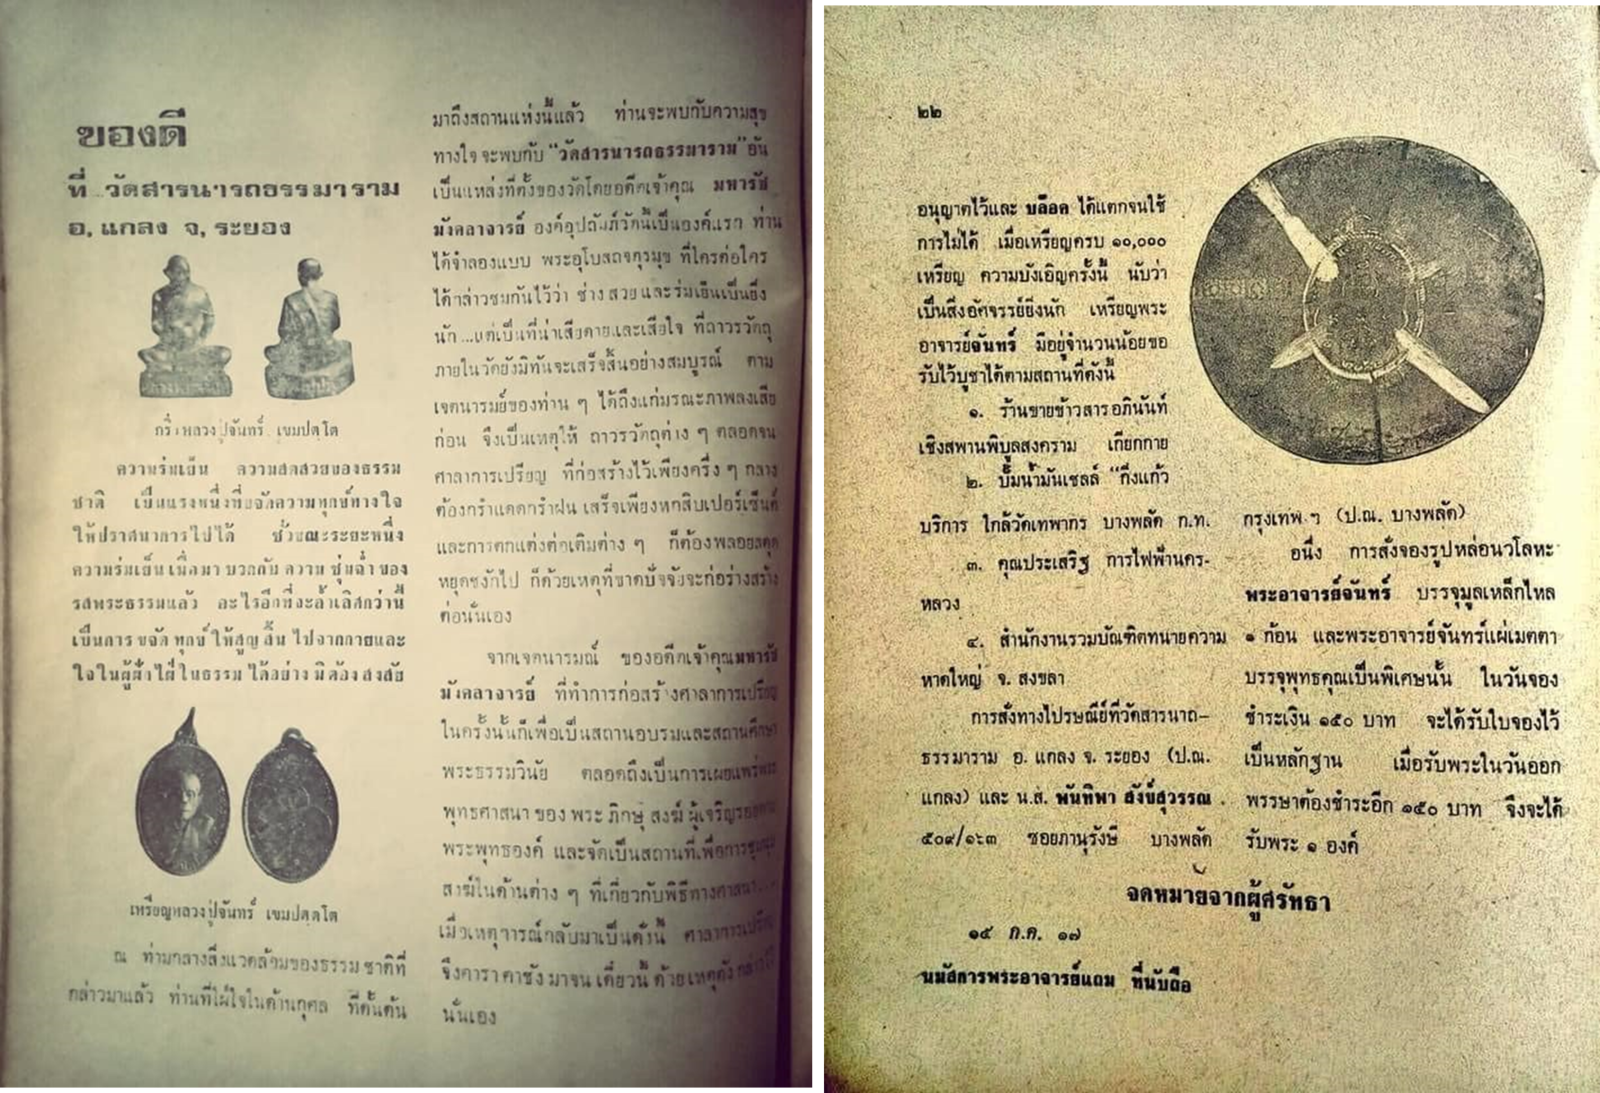 ของดี
ที่ วัดสารนารถธรรมาราม
อ, แกลง จ, ระยอง
กริ่งหลวงปู่จันทร์ เขมปตฺโต
ความร่มเย็น ความสดสวยของธรรม
ชาติ เป็นแรงหนึ่งที่ขจัดความทุกข์ทางใจ
ให้ปราศนาการไปได้ ชั่วขณะระยะหนึ่ง
ความร่มเย็นเมื่อมา บวกกับ ความ ชุ่มฉ่ำ ของ
รสพระธรรมแล้ว อะไรอีกที่จะล้ำเลิศกว่านี้
เป็นการ ขจัด ทุกข์ ให้สูญ สิ้น ไปจากกายและ
ใจในผู้ฝ่าไฝ่ ในธรรม ได้อย่าง มิต้อง สงสัย
เหรียญหลวงปู่จันทร์ เขมปตฺโต
ณ ท่ามกลางสิ่งแวดล้อมของธรรม ชาติที่
กล่าวมาแล้ว ท่านที่ไฝ่ใจในด้านกุศล ที่ดั้นด้น
มาถึงสถานแห่งนี้แล้ว ท่านจะพบกับความสุข
ทางใจ จะพบกับ "วัดสารนารถธรรมาราม" อัน
เป็นแหล่งที่ตั้งของวัดโดยอดีตเจ้าคุณ มหารัช
มังคลาจารย์ องค์อุปถัมภ์วัดนี้เป็นองค์แรก ท่าน
ได้จำลองแบบ พระอุโบสถจตุรมุข ที่ใครต่อใคร
ได้กล่าวชมกันไว้ว่า ช่าง สวย และร่มเย็นเป็นยิ่ง
นัก ...แต่เป็นที่น่าเสียดายและเสียใจ ที่ถาวรวัตถุ
ภายในวัดยังมิทันจะเสร็จสิ้นอย่างสมบูรณ์ ตาม
เจตนารมย์ของท่าน ๆ ได้ถึงแก่มรณะภาพลงเสีย
ก่อน จึงเป็นเหตุให้ ถาวรวัตถุต่าง ๆ ตลอดจน
ศาลาการเปรียญ ที่ก่อสร้างไว้เพียงครึ่ง ๆ กลาง
ต้องกรำแดดกรำฝน เสร็จเพียงหกสิบเปอร์เซ็นต์
และการตกแต่งต่อเติมต่าง ๆ ก็ต้องพลอยหยุด
หยุดชงักไป ก็ด้วยเหตุที่ขาดปัจจัยจะก่อร่างสร้าง
ต่อนั่นเอง
จากเจตนารมณ์ ของอดีตเจ้าคุณมหารัช
มังคลาจารย์ ที่ทำการก่อสร้างศาลาการเปรียญ
ในครั้งนั้นก็เพื่อเป็นสถานอบรมและสถานศึกษา
พระธรรมวินัย ตลอดถึงเป็นการเผยแพร่พระ
พุทธศาสนา ของ พระ ภิกษุ สงฆ์ ผู้เจริญรอยตาม
พระพุทธองค์ และจัดเป็นสถานที่เพื่อการชุมนุม
สงฆ์ในด้านต่าง ๆ ที่เกี่ยวกับพิธีทางศาสนา....
เมื่อเหตุการณ์กลับมาเป็นดั่งนี้ ศาลาการเปรียญ
จึงคาราคาซัง มาจน เดี๋ยวนี้ ด้วย เหตุดัง กล่าวไว้
นั่นเอง
๒๒
อนุญาตไว้และ บล๊อค ได้แตกจนใช้
การไม่ได้ เมื่อเหรียญครบ ๑๐,๐๐๐
เหรียญ ความบังเอิญครั้งนี้ นับว่า
เป็นสิ่งอัศจรรย์ยิ่งนัก เหรียญพระ
อาจารย์จันทร์ มีอยู่จำนวนน้อยขอ
รับไว้บูชาได้ตามสถานที่ดังนี้
๑. ร้านขายข้าวสารอภินันท์
เชิงสพานพิบูลสงคราม เกียกกาย
๒. ปั๊มน้ำมันเชลล์ "กิ่งแก้ว
บริการ ใกล้วัดเทพากร บางพลัด ก.ท.
๓. คุณประเสริฐ การไฟฟ้านคร-
หลวง
๔. สำนักงานรวมบัณฑิตทนายความ
หาดใหญ่ จ. สงขลา
การสั่งทางไปรษณีย์ที่วัดสารนาถ-
ธรรมาราม อ. แกลง จ. ระยอง (ป.ณ.
แกลง) และ น.ส. พันทิพา สังข์สุวรรณ
๕๐๙/๑๖๓ ซอยภานุรังษี บางพลัด
กรุงเทพ ฯ (ป.ณ. บางพลัด)
อนึ่ง การสั่งจองรูปหล่อนวโลหะ
พระอาจารย์จันทร์ บรรจุมูลเหล็กไหล
๑ ก้อน และพระอาจารย์จันทร์แผ่เมตตา
บรรจุพุทธคุณเป็นพิเศษนั้น ในวันจอง
ชำระเงิน ๑๕๐ บาท จะได้รับใบจองไว้
เป็นหลักฐาน เมื่อรับพระในวันออก
พรรษาต้องชำระอีก ๑๕๐ บาท จึงจะได้
รับพระ ๑ องค์
จดหมายจากผู้ศรัทธา
๑๕ ก.ค. ๑๗
นมัสการพระอาจารย์แถม ที่นับถือ